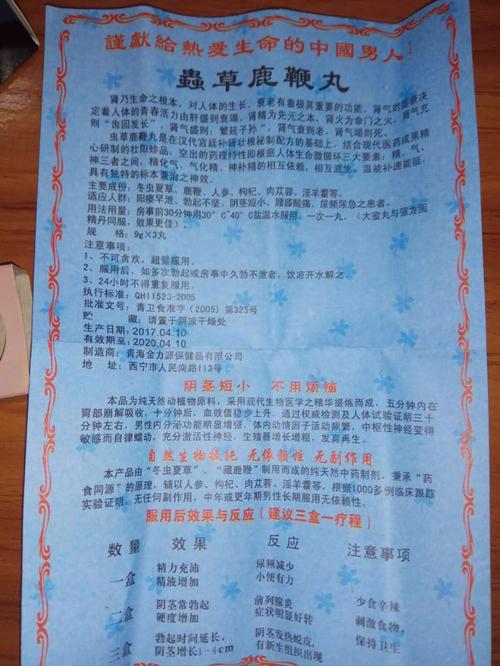 謹獻給熱愛生命的中國男人!
蟲草鹿鞭丸
肾乃生命之根本,对人体的生长、衰老有着极其重要的功能,肾气的盛衰决
定着人体的青春活力由肝盛到衰竭,肾精为先元之本,肾火为命门之火,肾气充
则“齿固发长”,肾气盛则:繁延子孙”,肾气衰则老,肾气竭则死。
虫草鹿鞭丸是在汉代宫廷补肾壮根秘制配方的基础上,结合现代医药成果精
心研制的壮阳珍品,空出的药理特性即根据人体生命微循环三大要素:精、气、
神三者之间,精化气、气化精、神补精的相互依赖、相互滋生,温能补速能挺,
具有独特的标本兼治之神效。
主要成份:冬虫夏草、鹿鞭、人参、枸杞、肉苁蓉、淫羊藿等。
适应人群:阳痿早泄、勃起不坚、阴茎短小、腰膝酸痛、尿频尿急之患者。
用法用量:房事前30分钟用30°C~40°C盐温水服用。一次一丸。(大蜜丸与强力固
精丹同服,效果更佳)
规 格:9g×3丸
注意事项:
1、不可贪欢,超量服用。
2、服用后,如多次勃起或房事中久勃不泄者,饮凉开水解之。
3、24小时不得重复服用。
执行标准:QH11523-2005
批准文号:青卫食准字(2005)第325号
贮 藏:请置于阴凉干燥处
生产日期:2017.04.10
有效期至:2020.04.10
制造商:青海金力源保健品有限公司
地 址:西宁市人民南路113号
阴茎短小 不用烦恼
本品为纯天然动植物原料,采用现代生物医学之精华提炼而成,五分钟内在
胃部崩解吸收,十分钟后,血效值稳步上升,通过权威检测及人体试验证明三十
分钟左右,男性内分泌功能明显增强,体内动情因子活动频繁,中枢性神经变得
敏感而自律蠕动,充分激活性神经,生殖器增长增粗,发育再生。
自然生物提纯 无依赖性 无副作用
本产品由“冬虫夏草”、“藏鹿鞭”制用而成的纯天然中药制剂,秉承“药
食同源”的原理,辅以人参、枸杞、肉苁蓉、淫羊藿等,根据1000多例临床跟踪
实验证明,无任何副作用,中年或更年期男性长期服用无依赖性。
服用后效果与反应(建议三盒一疗程)
数量 效果 反应 注意事项
一盒 精力充沛 精液增加 尿频减少 小便有力
二盒 阴茎常勃起 硬度增加 前列腺炎 症状明显好转 少食辛辣 刺激食物,
三盒 勃起时间延长, 阴茎增长1-4cm 阴茎发热蜕皮, 有新生组织出现 保持卫生